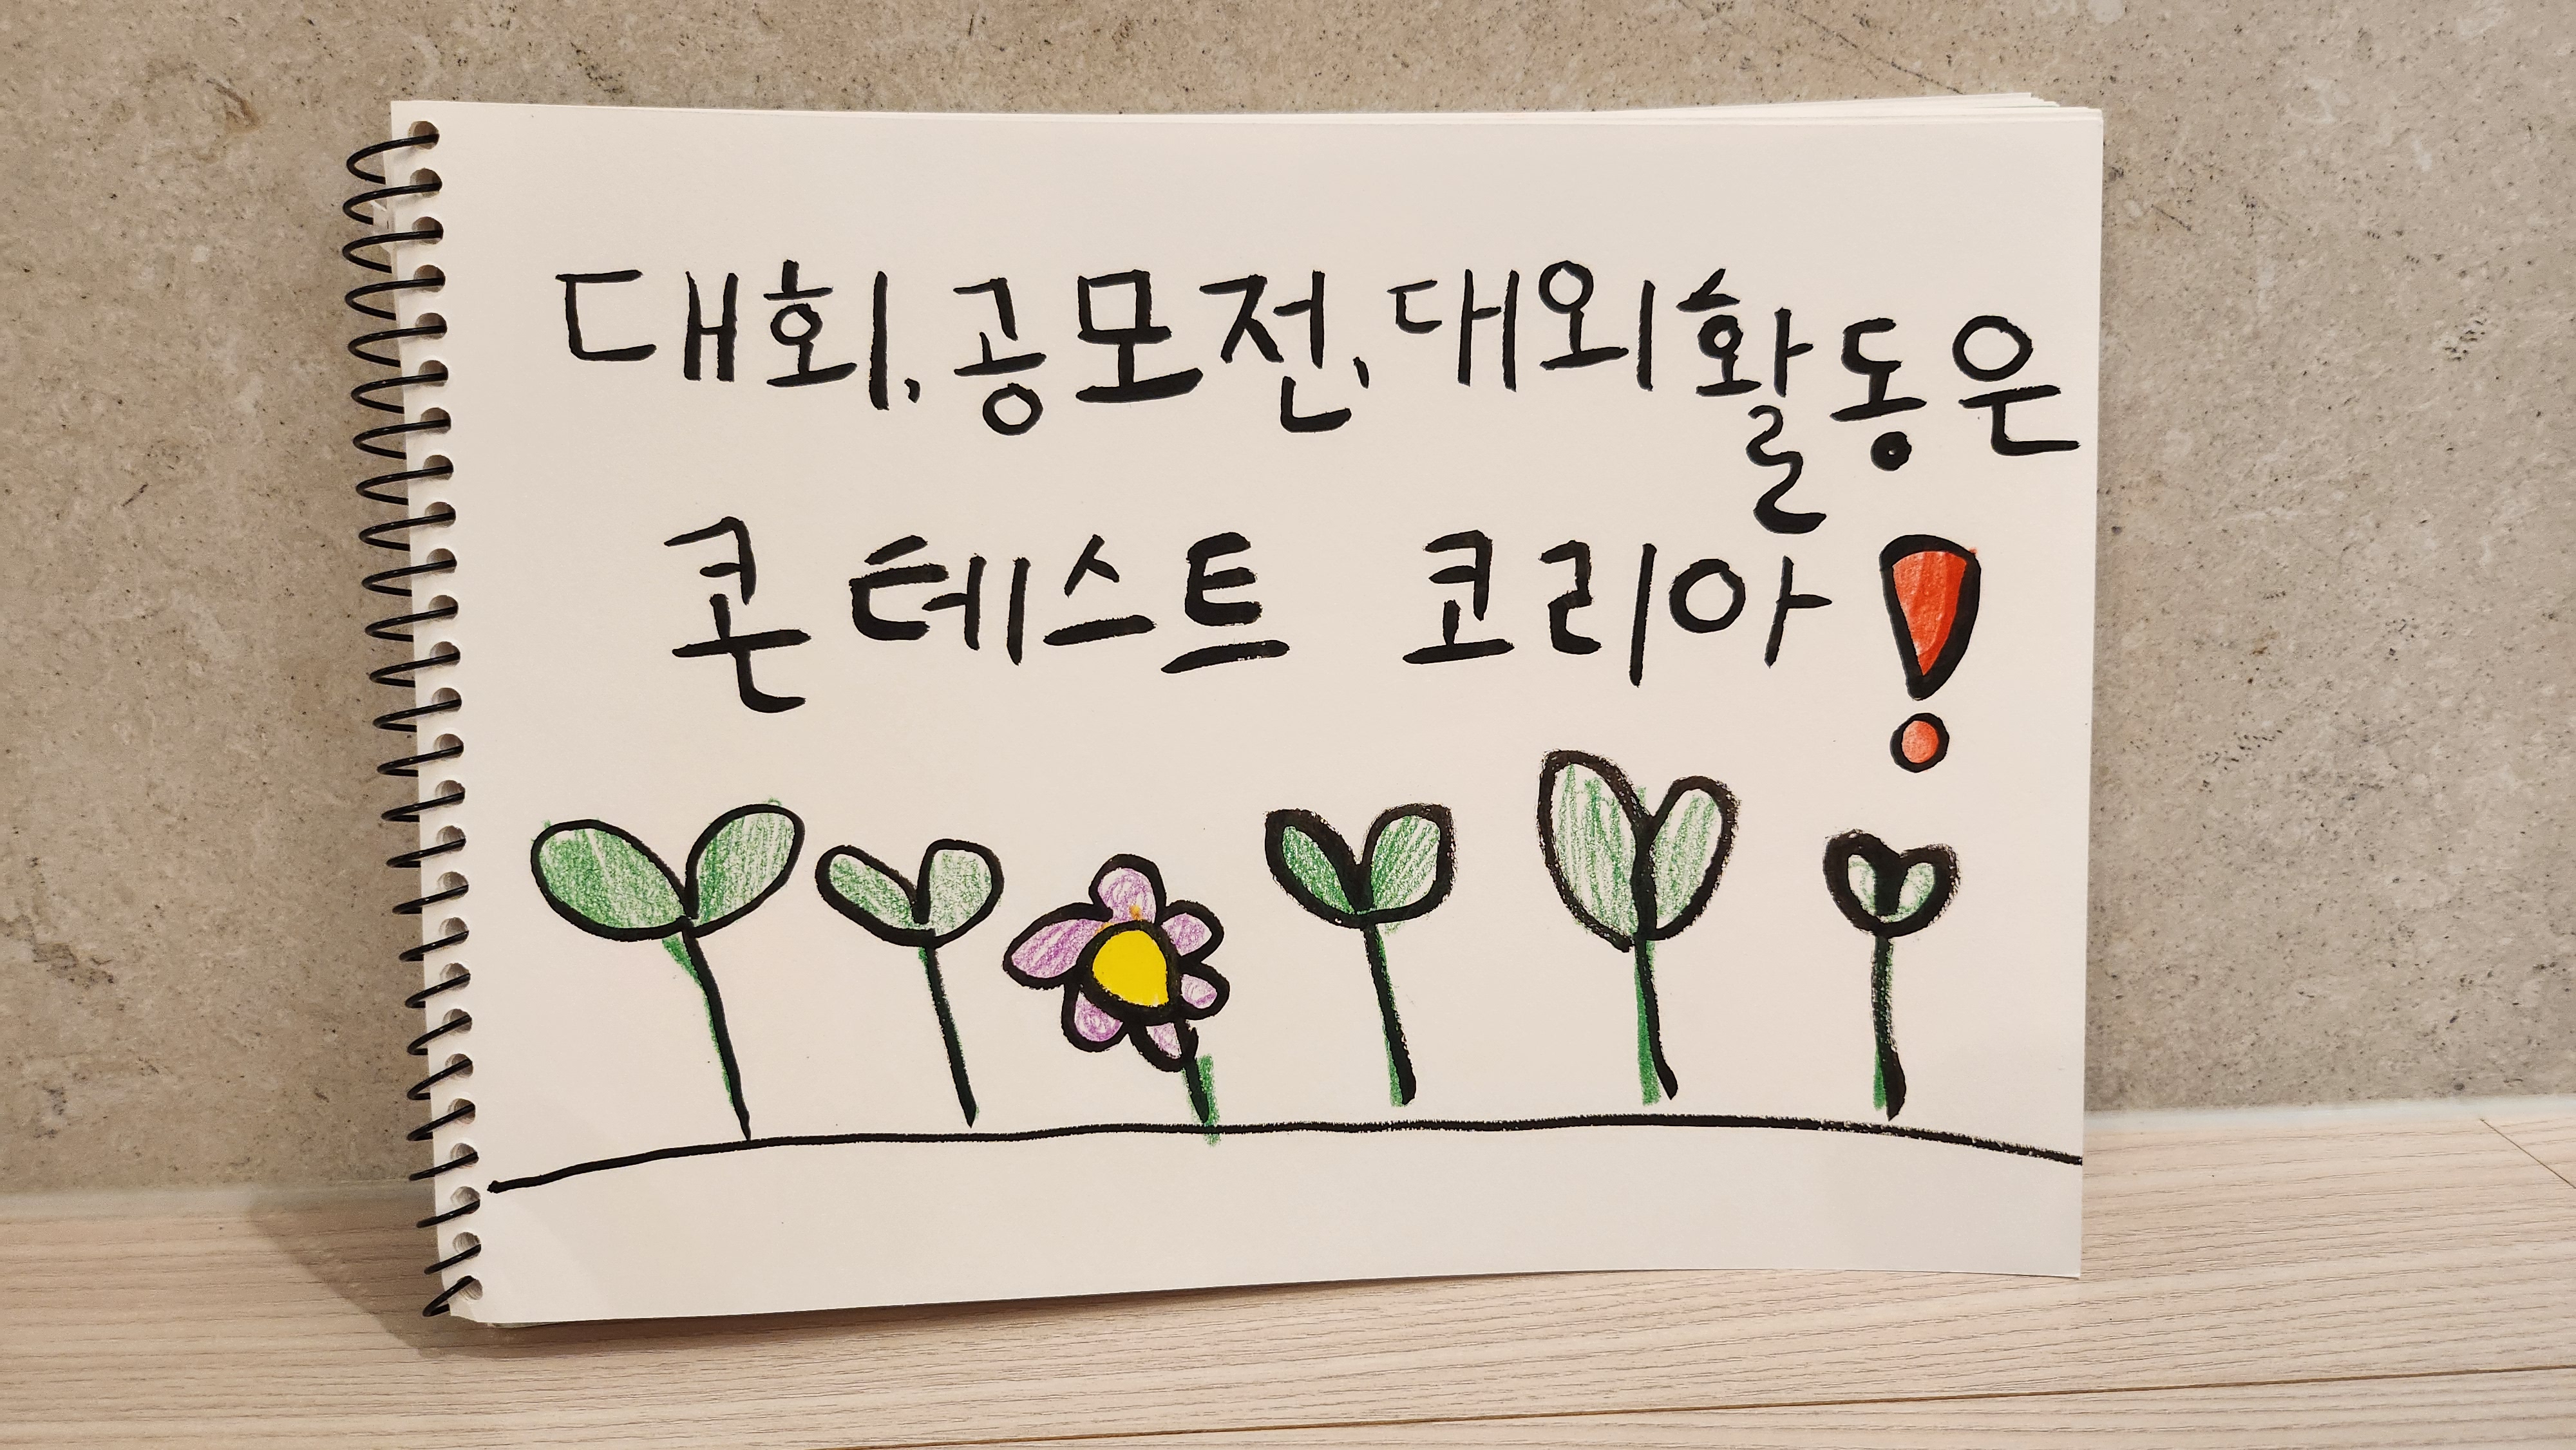 대회, 공모전, 대외활동은
콘테스트 코리아!